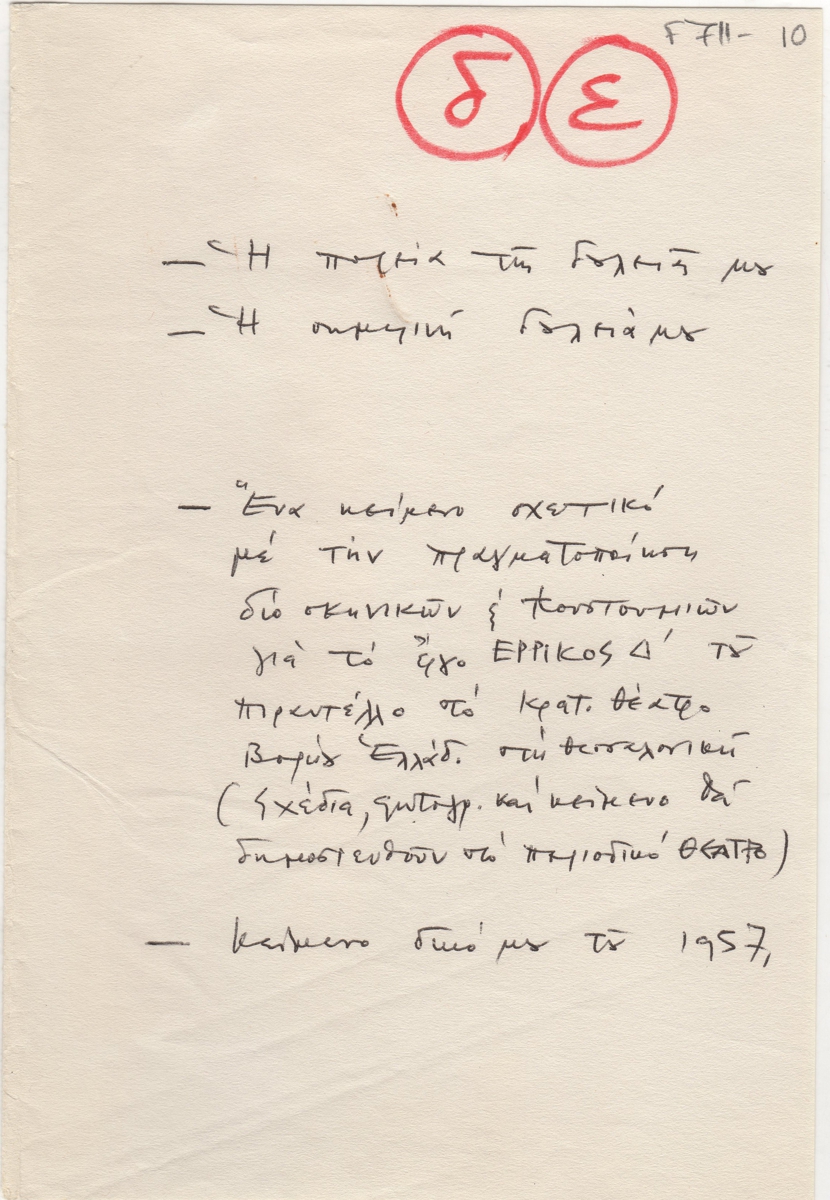 F 711 - 10
δ ε
— Ἡ πορεία τῆς δουλειᾶς μου
— Ἡ σημερινή δουλειά μου
— Ἕνα κείμενο σχετικό
μέ τήν πραγματοποίηση
δύο σκηνικῶν ἤ κουστουμιῶν
γιά τό ἔργο ΕΡΡΙΚΟΣ Δ΄ τοῦ
Πιραντέλλο στό Κρατ. θέατρο
Βορείου Ἑλλάδ. στή Θεσσαλονίκη
(Σχέδια, φωτογρ. καί κείμενο θά
δημοσιευθοῦν στό περιοδικό ΘΕΑΤΡΟ)
— Κείμενο δικό μου τοῦ 1957,